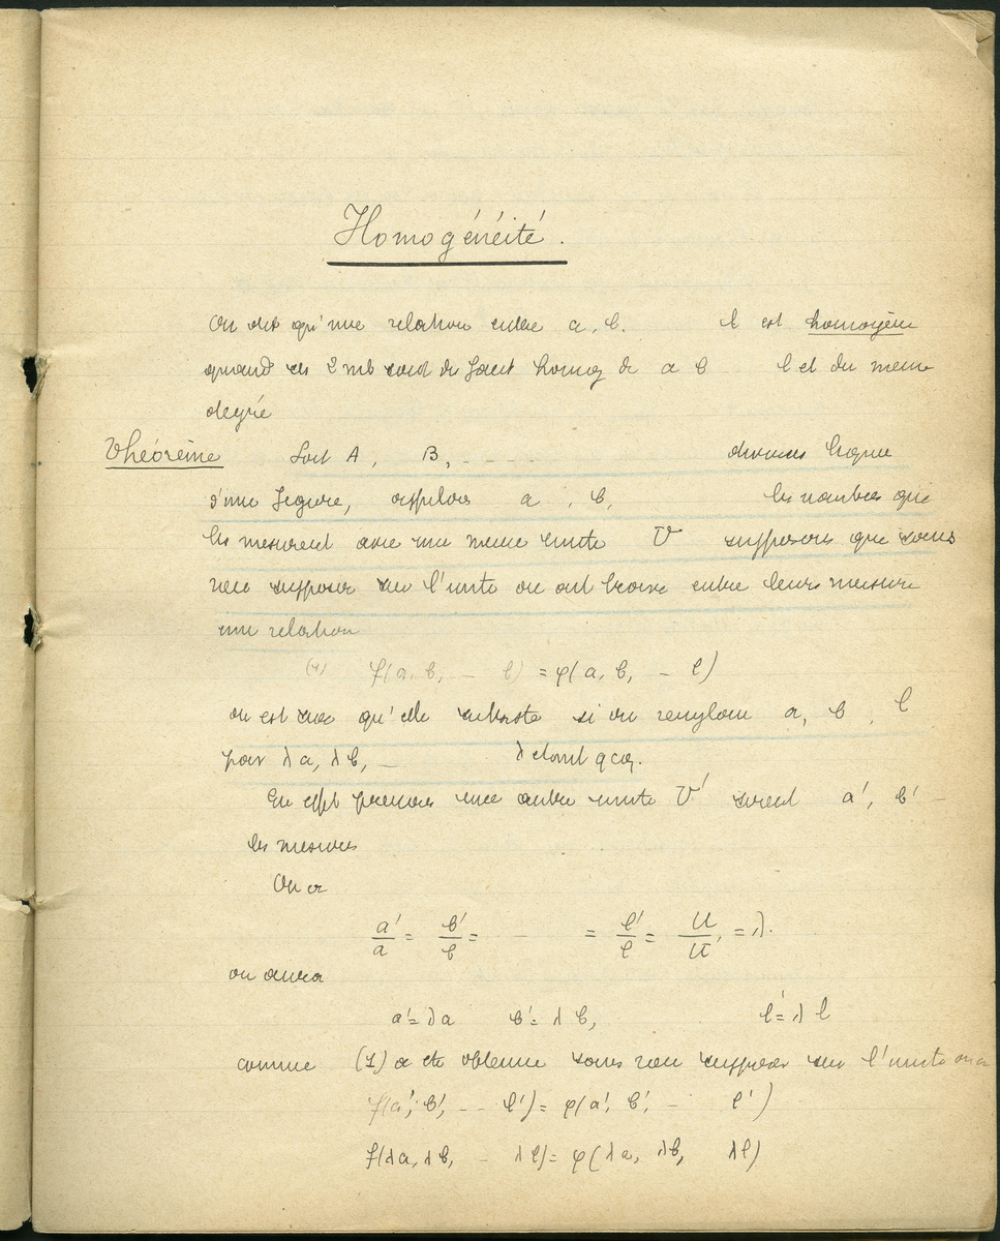 Homogénéité.
On dit qu'une relation entre a, b. l est homogène
quand ces 2 mb sont des fonct homog de a b l et du meme
degré
Théorème Soit A, B, - - - - diverses lignes
d'une figure, appelons a, b, les nombres qui
les mesurent avec une meme unite U supposons que sans
rien supposer sur l'unite on ait trouve entre leurs mesure
une relation
(1) f(a, b, - l) = φ(a, b, - l)
on est que qu'elle subsiste si on remplace a, b, l
par λa, λb, - λ etant qcq.
En effet prenons une autre unite U' soient a', b' -
les mesures
On a
a'/a = b'/b = - = l'/l = U/U' = λ.
on aura
a' = λa b' = λb, l' = λl
comme (1) a ete obtenue sans rien supposer sur l'unite on a
f(a', b', - - l') = φ(a', b', - l')
f(λa, λb, - λl) = φ(λa, λb, λl)